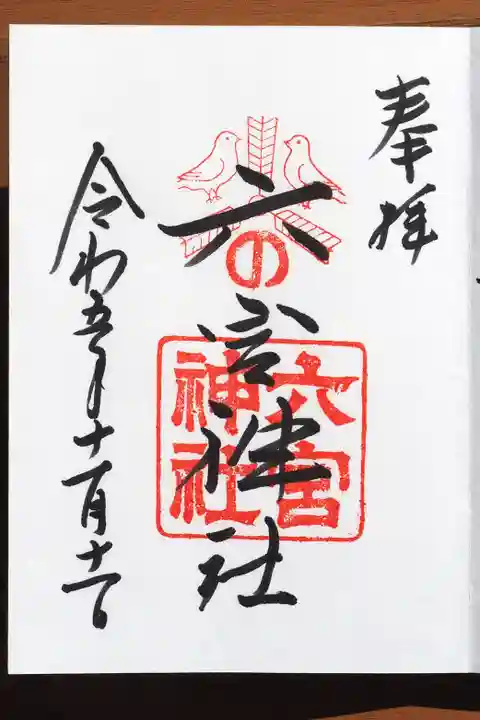 奉拝
六宮神社
の
六宮
神社
令和五年十一月十一日